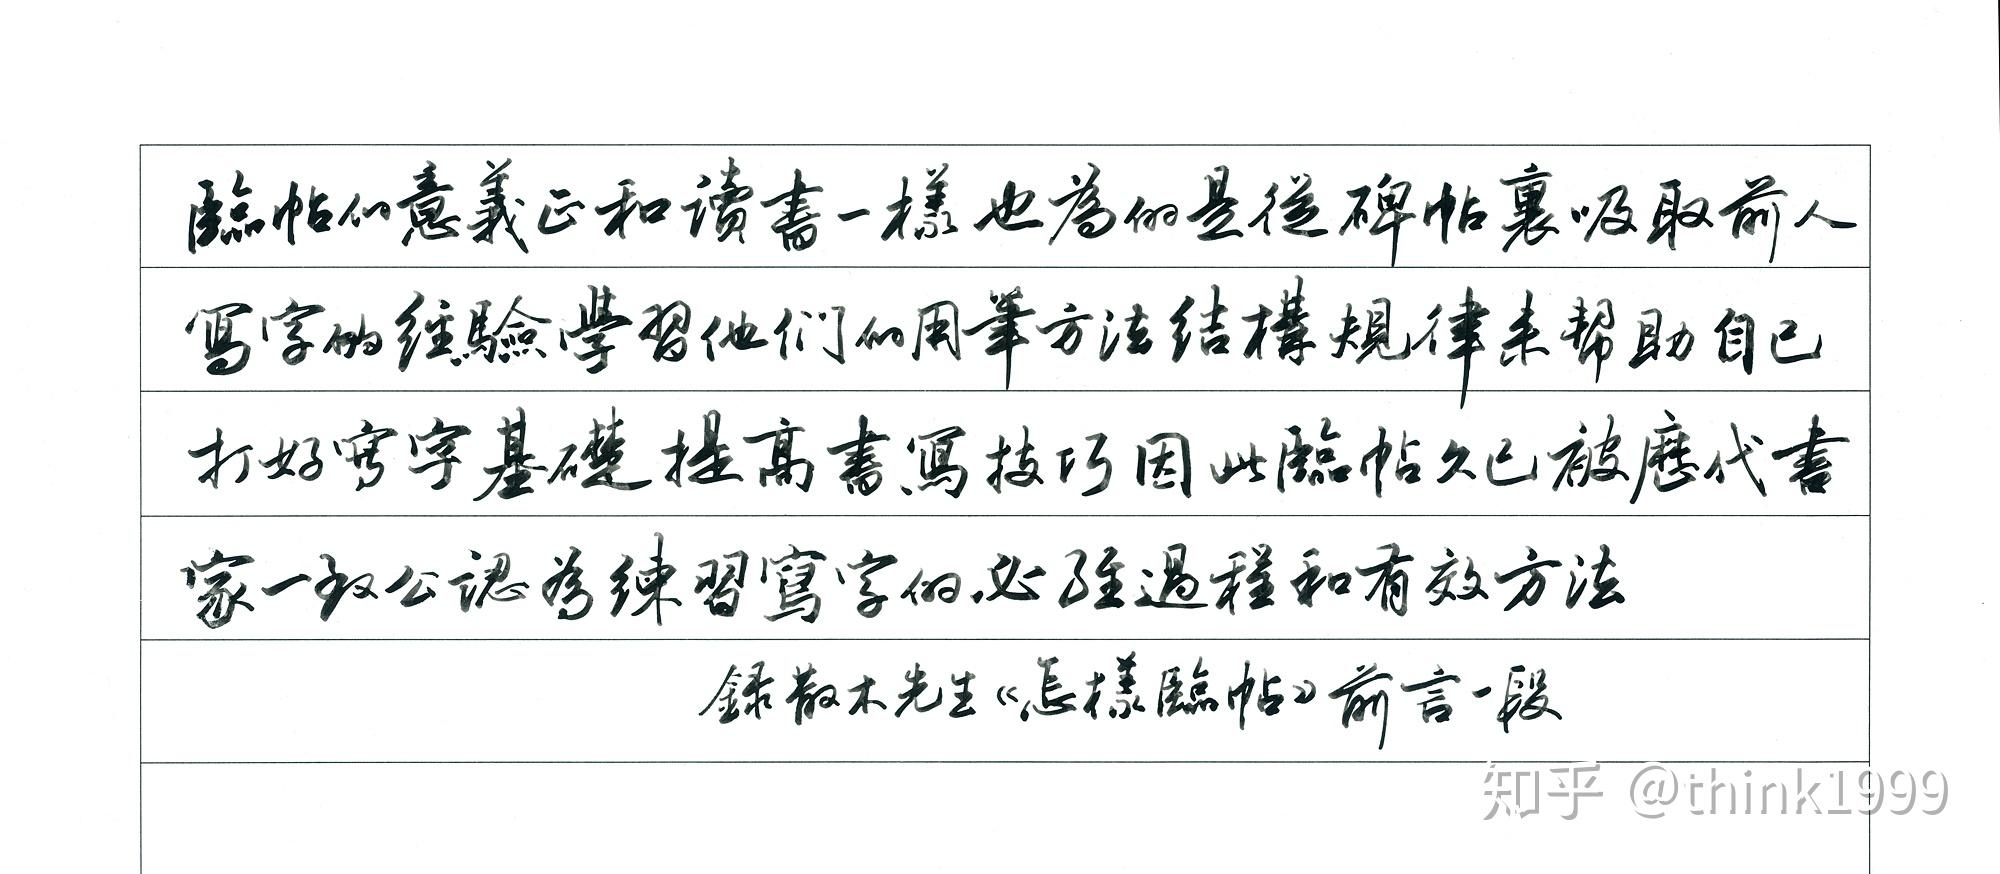 臨帖的意義正和讀書一樣也為的是從碑帖裏吸取前人
寫字的經驗學習他們的用筆方法結構規律來幫助自己
打好寫字基礎提高書寫技巧因此臨帖久已被歷代書
家一致公認為練習寫字的必經過程和有效方法
錄散木先生《怎樣臨帖》前言一段
知乎 @think1999